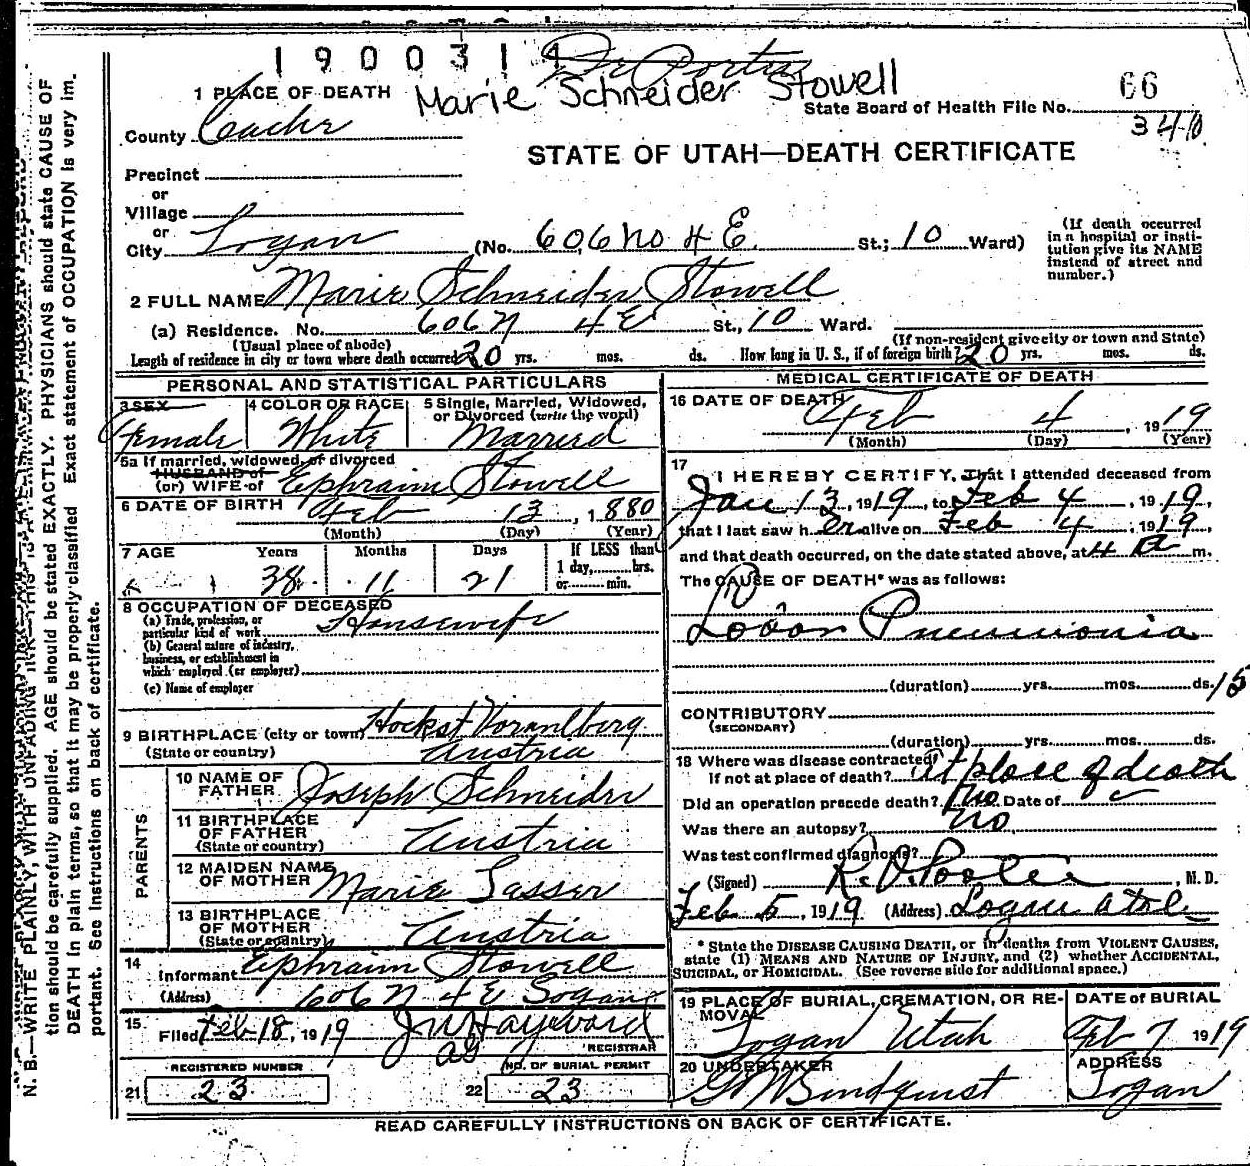 1900314
Marie Schneider Stowell
1 PLACE OF DEATH
State Board of Health File No. 66
340
County Cache
STATE OF UTAH—DEATH CERTIFICATE
Precinct
or
Village
or
City Logan (No. 606 no 4 E. St.; 10 Ward)
(If death occurred
in a hospital or insti-
tution give its NAME
instead of street and
number.)
2 FULL NAME Marie Schneider Stowell
(a) Residence. No. 606 N 4 E St., 10 Ward.
(Usual place of abode)
(If non-resident give city or town and State)
Length of residence in city or town where death occurred 20 yrs. mos. ds. How long in U. S., if of foreign birth? 20 yrs. mos. ds.
PERSONAL AND STATISTICAL PARTICULARS
3 SEX
Female
4 COLOR OR RACE
White
5 Single, Married, Widowed,
or Divorced (write the word)
Married
5a If married, widowed, or divorced
HUSBAND of
(or) WIFE of Ephraim Stowell
6 DATE OF BIRTH Feb 13, 1880
(Month) (Day) (Year)
7 AGE Years Months Days If LESS than
38 11 21 1 day, hrs.
or min.
8 OCCUPATION OF DECEASED
(a) Trade, profession, or
particular kind of work Housewife
(b) General nature of industry,
business, or establishment in
which employed (or employer)
(c) Name of employer
9 BIRTHPLACE (city or town) Hockst Voranlberg
(State or country) Austria
PARENTS
10 NAME OF
FATHER Joseph Schneider
11 BIRTHPLACE
OF FATHER
(State or country) Austria
12 MAIDEN NAME
OF MOTHER Marie Sasser
13 BIRTHPLACE
OF MOTHER
(State or country) Austria
14
Informant Ephraim Stowell
(Address) 606 N 4 E Logan
15
Filed Feb 18, 1919 J W Hayward
REGISTRAR
REGISTERED NUMBER
21 23
NO. OF BURIAL PERMIT
22 23
MEDICAL CERTIFICATE OF DEATH
16 DATE OF DEATH
Feb 4, 1919
(Month) (Day) (Year)
17
I HEREBY CERTIFY, That I attended deceased from
Jan 13, 1919, to Feb 4, 1919,
that I last saw her alive on Feb 4, 1919,
and that death occurred, on the date stated above, at 4 a m.
The CAUSE OF DEATH* was as follows:
Pneumonia
(duration) yrs. mos. ds. 15
CONTRIBUTORY
(SECONDARY)
(duration) yrs. mos. ds.
18 Where was disease contracted
if not at place of death? At place of death
Did an operation precede death? No Date of
Was there an autopsy? no
Was test confirmed diagnosis?
(Signed) , M. D.
Feb 5, 1919 (Address) Logan Utah
* State the DISEASE CAUSING DEATH, or in deaths from VIOLENT CAUSES,
state (1) MEANS AND NATURE OF INJURY, and (2) whether ACCIDENTAL,
SUICIDAL, or HOMICIDAL. (See reverse side for additional space.)
19 PLACE OF BURIAL, CREMATION, OR RE-
MOVAL
Logan Utah
DATE of BURIAL
Feb 7 1919
20 UNDERTAKER
G W Lindquist
ADDRESS
Logan
READ CAREFULLY INSTRUCTIONS ON BACK OF CERTIFICATE.
N. B.—WRITE PLAINLY, WITH UNFADING INK—THIS IS A PERMANENT RECORD
tion should be carefully supplied. AGE should be stated EXACTLY. PHYSICIANS should state CAUSE OF
DEATH in plain terms, so that it may be properly classified Exact statement of OCCUPATION is very im.
portant. See instructions on back of certificate.